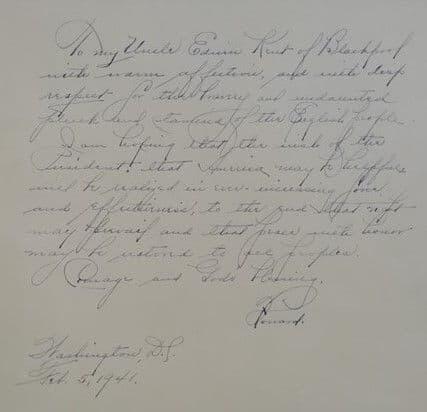 To my Uncle Edwin Kent of Blackpool
with warm affection, and with deep
respect for the bravery and undaunted
pluck and stamina of the English people.
I am hoping that the wish of the
President, that America may be helpful
will be realized in ever-increasing force
and effectiveness, to the end that right
may prevail and that peace with honor
may be restored to all peoples.
Courage and God's blessing.
Washington, D.C.
Feb. 5, 1941.